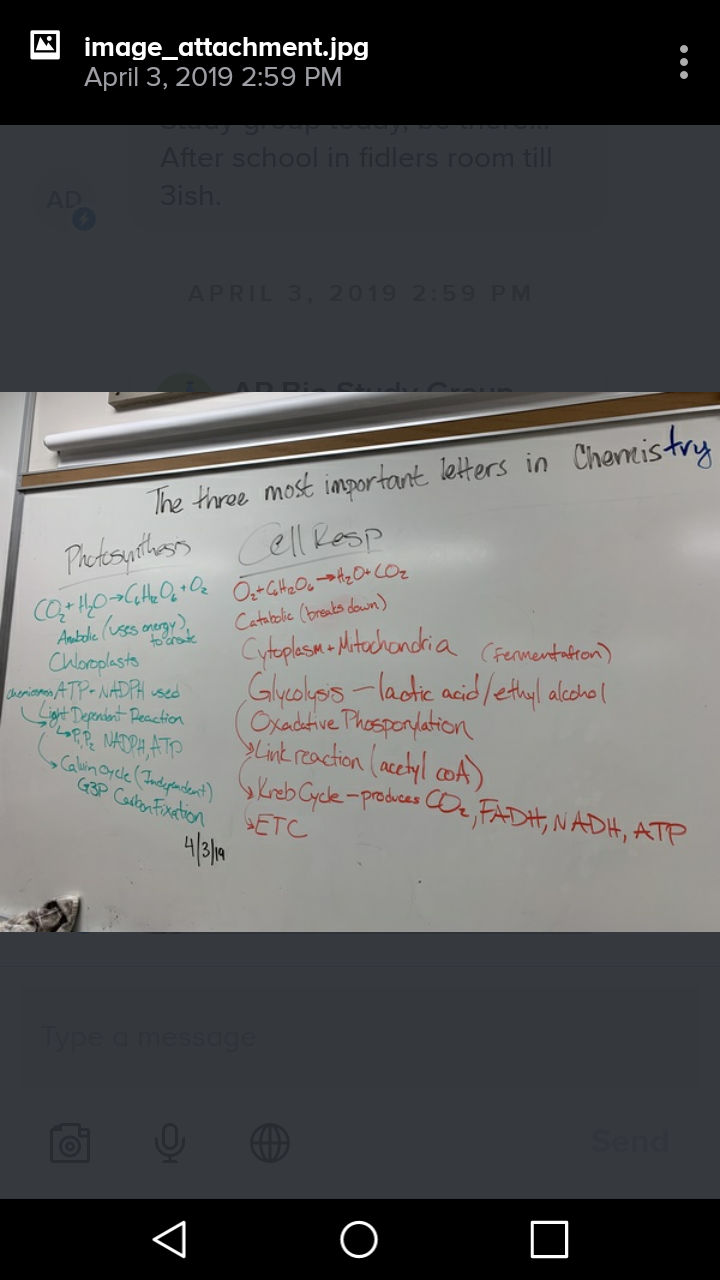 image_attachment.jpg
April 3, 2019 2:59 PM
Study group today, be there...
After school in fidlers room till
3ish.
AD
APRIL 3, 2019 2:59 PM
AP Bio Study Group
The three most important letters in Chemistry
Photosynthesis
CO₂ + H₂O → C₆H₁₂O₆ + O₂
Anabolic (uses energy)
to create
Chloroplasts
ATP + NADPH used
Light Dependent Reaction
P₁ P₂ NADPH, ATP
Calvin cycle (Independent)
G3P Carbon Fixation
4/3/19
Cell Resp
O₂ + C₆H₁₂O₆ → H₂O + CO₂
Catabolic (breaks down)
Cytoplasm + Mitochondria (Fermentation)
Glycolysis – lactic acid/ethyl alcohol
Oxadative Phosporylation
Link reaction (acetyl coA)
Kreb Cycle – produces CO₂, FADH, NADH, ATP
ETC
Type a message
Send